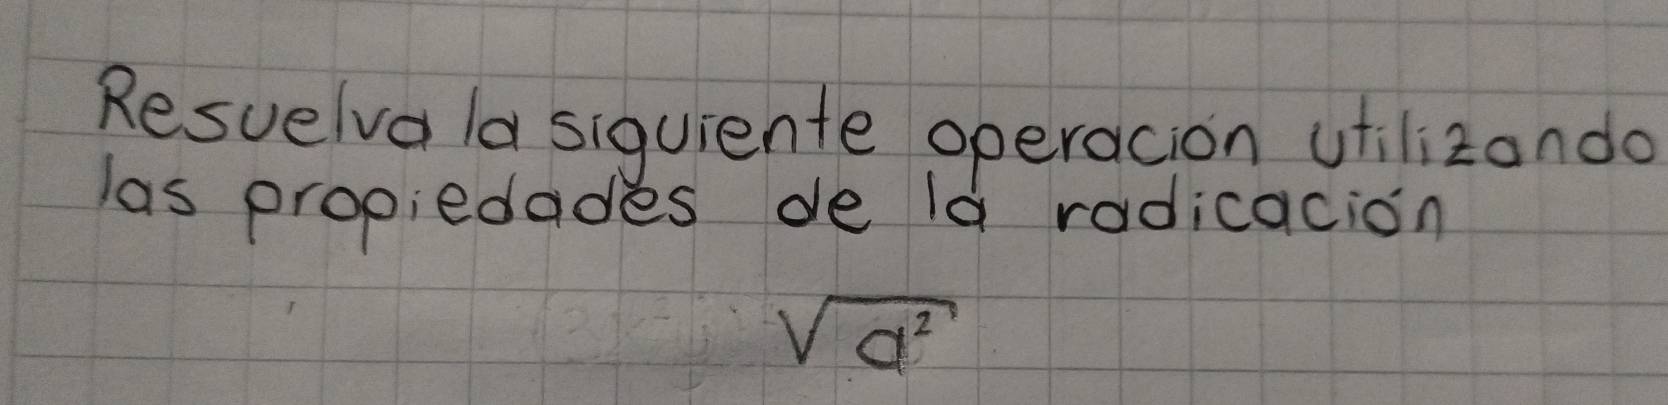 Resuelva la siguiente operación utilizando
las propiedades de la radicación
√a²